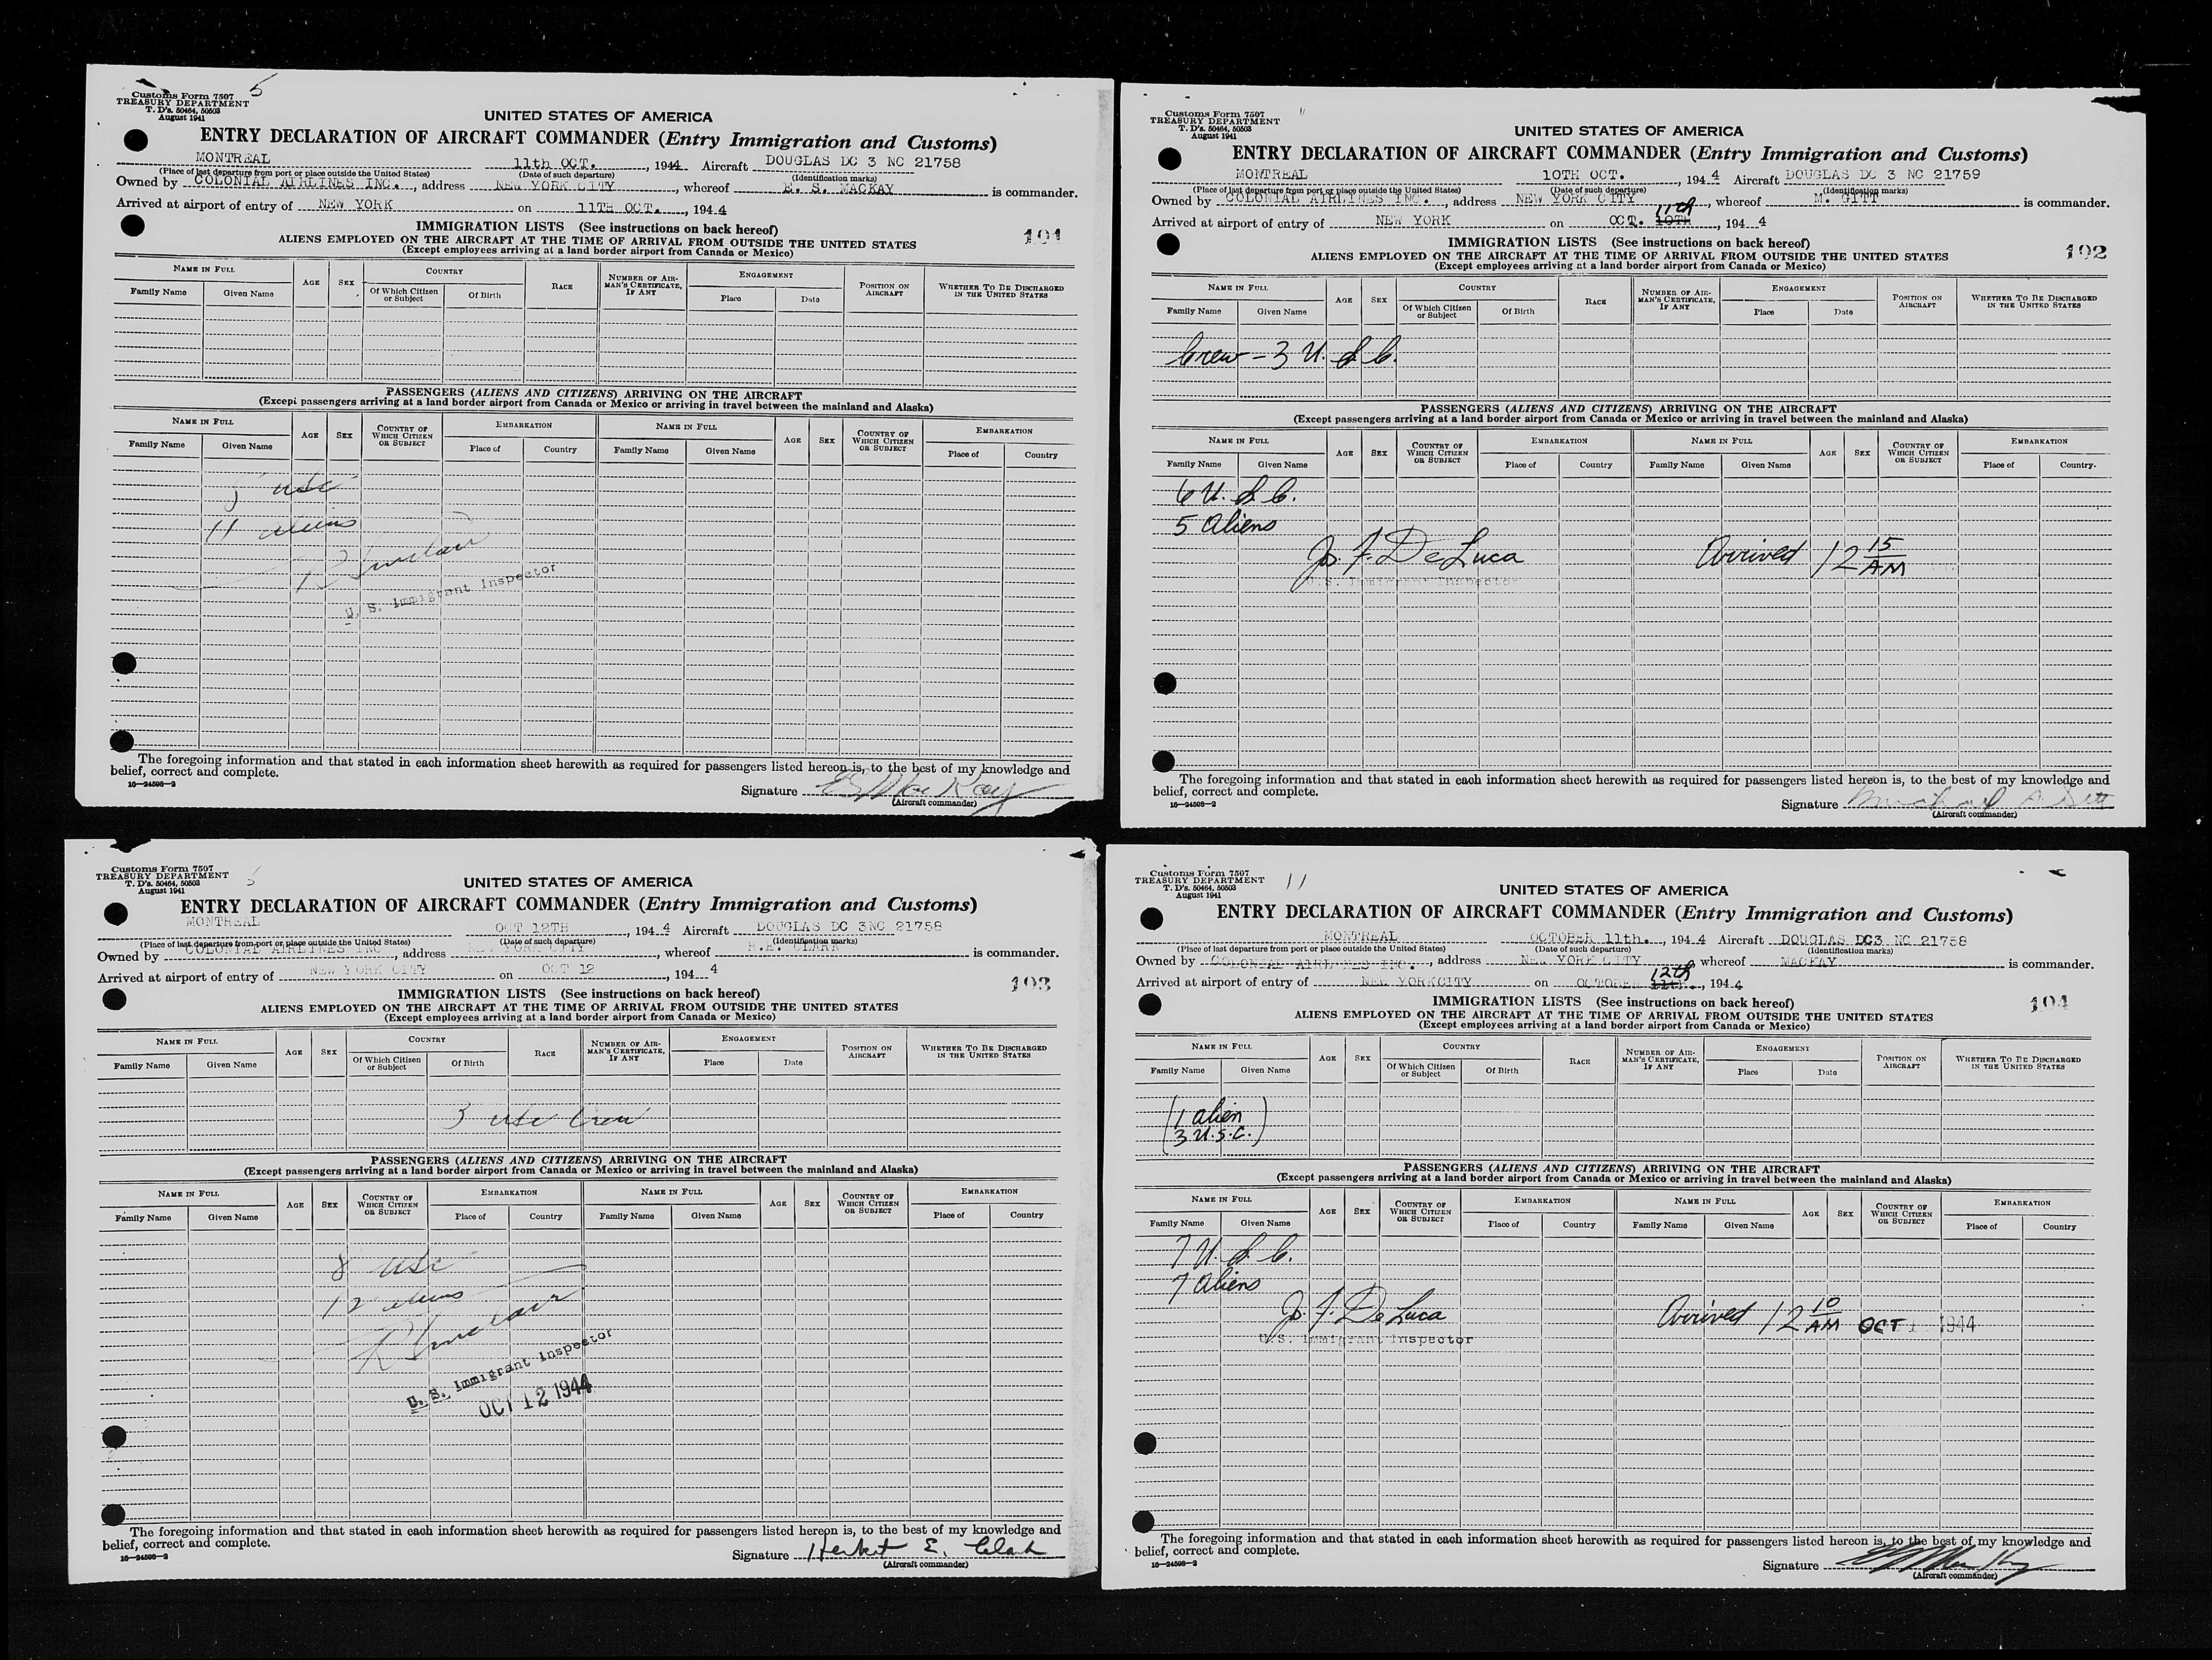 Customs Form 7507 5
TREASURY DEPARTMENT
T. D's. 50464, 50503
August 1941
UNITED STATES OF AMERICA
ENTRY DECLARATION OF AIRCRAFT COMMANDER (Entry Immigration and Customs)
MONTREAL 11th OCT. , 1944 Aircraft DOUGLAS DC 3 NC 21758
(Place of last departure from port or place outside the United States) (Date of such departure) (Identification marks)
Owned by COLONIAL AIRLINES INC. , address NEW YORK CITY , whereof E. S. MACKAY is commander.
Arrived at airport of entry of NEW YORK on 11TH OCT. , 194 4
IMMIGRATION LISTS (See instructions on back hereof) 101
ALIENS EMPLOYED ON THE AIRCRAFT AT THE TIME OF ARRIVAL FROM OUTSIDE THE UNITED STATES
(Except employees arriving at a land border airport from Canada or Mexico)
NAME IN FULL AGE SEX COUNTRY RACE NUMBER OF AIR-MAN'S CERTIFICATE, IF ANY ENGAGEMENT POSITION ON AIRCRAFT WHETHER TO BE DISCHARGED IN THE UNITED STATES
Family Name Given Name Of Which Citizen or Subject Of Birth Place Date
PASSENGERS (ALIENS AND CITIZENS) ARRIVING ON THE AIRCRAFT
(Except passengers arriving at a land border airport from Canada or Mexico or arriving in travel between the mainland and Alaska)
NAME IN FULL AGE SEX COUNTRY OF WHICH CITIZEN OR SUBJECT EMBARKATION NAME IN FULL AGE SEX COUNTRY OF WHICH CITIZEN OR SUBJECT EMBARKATION
Family Name Given Name Place of Country Family Name Given Name Place of Country
5 usc
11 aliens
R Sinclair
U. S. Immigrant Inspector
The foregoing information and that stated in each information sheet herewith as required for passengers listed hereon is, to the best of my knowledge and
belief, correct and complete.
16—24598-2 Signature E S MacKay
(Aircraft commander)
Customs Form 7507 11
TREASURY DEPARTMENT
T. D's. 50464, 50503
August 1941
UNITED STATES OF AMERICA
ENTRY DECLARATION OF AIRCRAFT COMMANDER (Entry Immigration and Customs)
MONTREAL 10TH OCT. , 194 4 Aircraft DOUGLAS DC 3 NC 21759
(Place of last departure from port or place outside the United States) (Date of such departure) (Identification marks)
Owned by COLONIAL AIRLINES INC. , address NEW YORK CITY , whereof M. GITT is commander.
Arrived at airport of entry of NEW YORK on OCT. 10TH 11th , 194 4
IMMIGRATION LISTS (See instructions on back hereof) 102
ALIENS EMPLOYED ON THE AIRCRAFT AT THE TIME OF ARRIVAL FROM OUTSIDE THE UNITED STATES
(Except employees arriving at a land border airport from Canada or Mexico)
NAME IN FULL AGE SEX COUNTRY RACE NUMBER OF AIR-MAN'S CERTIFICATE, IF ANY ENGAGEMENT POSITION ON AIRCRAFT WHETHER TO BE DISCHARGED IN THE UNITED STATES
Family Name Given Name Of Which Citizen or Subject Of Birth Place Date
Crew - 3 U. S. C.
PASSENGERS (ALIENS AND CITIZENS) ARRIVING ON THE AIRCRAFT
(Except passengers arriving at a land border airport from Canada or Mexico or arriving in travel between the mainland and Alaska)
NAME IN FULL AGE SEX COUNTRY OF WHICH CITIZEN OR SUBJECT EMBARKATION NAME IN FULL AGE SEX COUNTRY OF WHICH CITIZEN OR SUBJECT EMBARKATION
Family Name Given Name Place of Country Family Name Given Name Place of Country.
6 U. S. C.
5 Aliens
Jos. F. DeLuca Arrived 12 15 AM
U.S. Immigrant Inspector
The foregoing information and that stated in each information sheet herewith as required for passengers listed hereon is, to the best of my knowledge and
belief, correct and complete.
16—24598-2 Signature Michael A Gitt
(Aircraft commander)
Customs Form 7507 5
TREASURY DEPARTMENT
T. D's. 50464, 50503
August 1941
UNITED STATES OF AMERICA
ENTRY DECLARATION OF AIRCRAFT COMMANDER (Entry Immigration and Customs)
MONTREAL OCT 12TH , 194 4 Aircraft DOUGLAS DC 3NC 21758
(Place of last departure from port or place outside the United States) (Date of such departure) (Identification marks)
Owned by COLONIAL AIRLINES INC , address NEW YORK CITY , whereof H.E. CLARK is commander.
Arrived at airport of entry of NEW YORK CITY on OCT 12 , 194 4
IMMIGRATION LISTS (See instructions on back hereof) 103
ALIENS EMPLOYED ON THE AIRCRAFT AT THE TIME OF ARRIVAL FROM OUTSIDE THE UNITED STATES
(Except employees arriving at a land border airport from Canada or Mexico)
NAME IN FULL AGE SEX COUNTRY RACE NUMBER OF AIR-MAN'S CERTIFICATE, IF ANY ENGAGEMENT POSITION ON AIRCRAFT WHETHER TO BE DISCHARGED IN THE UNITED STATES
Family Name Given Name Of Which Citizen or Subject Of Birth Place Date
3 usc Crew
PASSENGERS (ALIENS AND CITIZENS) ARRIVING ON THE AIRCRAFT
(Except passengers arriving at a land border airport from Canada or Mexico or arriving in travel between the mainland and Alaska)
NAME IN FULL AGE SEX COUNTRY OF WHICH CITIZEN OR SUBJECT EMBARKATION NAME IN FULL AGE SEX COUNTRY OF WHICH CITIZEN OR SUBJECT EMBARKATION
Family Name Given Name Place of Country Family Name Given Name Place of Country
8 usc
12 aliens
R Sinclair
U. S. Immigrant Inspector
OCT 12 1944
The foregoing information and that stated in each information sheet herewith as required for passengers listed hereon is, to the best of my knowledge and
belief, correct and complete.
16—24598-2 Signature Herbert E. Clark
(Aircraft commander)
Customs Form 7507 11
TREASURY DEPARTMENT
T. D's. 50464, 50503
August 1941
UNITED STATES OF AMERICA
ENTRY DECLARATION OF AIRCRAFT COMMANDER (Entry Immigration and Customs)
MONTREAL OCTOBER 11th. , 194 4 Aircraft DOUGLAS DC3 NC 21758
(Place of last departure from port or place outside the United States) (Date of such departure) (Identification marks)
Owned by COLONIAL AIRLINES INC. , address NEW YORK CITY whereof MACKAY is commander.
Arrived at airport of entry of NEW YORKCITY on OCTOBER 11th. 12th , 194 4
IMMIGRATION LISTS (See instructions on back hereof) 104
ALIENS EMPLOYED ON THE AIRCRAFT AT THE TIME OF ARRIVAL FROM OUTSIDE THE UNITED STATES
(Except employees arriving at a land border airport from Canada or Mexico)
NAME IN FULL AGE SEX COUNTRY RACE NUMBER OF AIR-MAN'S CERTIFICATE, IF ANY ENGAGEMENT POSITION ON AIRCRAFT WHETHER TO BE DISCHARGED IN THE UNITED STATES
Family Name Given Name Of Which Citizen or Subject Of Birth Place Date
(1 alien
3 U.S.C.)
PASSENGERS (ALIENS AND CITIZENS) ARRIVING ON THE AIRCRAFT
(Except passengers arriving at a land border airport from Canada or Mexico or arriving in travel between the mainland and Alaska)
NAME IN FULL AGE SEX COUNTRY OF WHICH CITIZEN OR SUBJECT EMBARKATION NAME IN FULL AGE SEX COUNTRY OF WHICH CITIZEN OR SUBJECT EMBARKATION
Family Name Given Name Place of Country Family Name Given Name Place of Country
7 U. S. C.
7 Aliens
Jos. F. DeLuca Arrived 12 10 AM OCT 1944
U.S. Immigrant Inspector
The foregoing information and that stated in each information sheet herewith as required for passengers listed hereon is, to the best of my knowledge and
belief, correct and complete.
16—24598-2 Signature E S MacKay
(Aircraft commander)